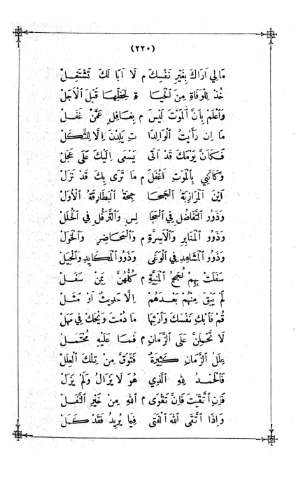 (٢٢٠)
مَالِي أَرَاكَ بِغَيْرِ نَفْسِكَ م لَا أَبَا لَكَ تَشْتَغِلْ
خُذْ لِلْوَفَاةِ مِنَ الْحَيَا ةِ بِحَظِّهَا قَبْلَ الْأَجَلْ
وَاعْلَمْ بِأَنَّ الْمَوْتَ لَيْسَ م بِغَافِلٍ عَمَّنْ غَفَلْ
مَا إِنْ رَأَيْتُ الْوَالِدَا تِ يَلِدْنَ إِلَّا لِلثَّكَلْ
فَكَأَنَّ يَوْمَكَ قَدْ أَتَى يَسْعَى إِلَيْكَ عَلَى عَجَلْ
وَكَأَنَّنِي بِالْمَوْتِ م مَا تَرَى بِكَ قَدْ نَزَلْ
أَيْنَ الْمَرَازِبَةُ الْجَحَا جِحَةُ الْبَطَارِقَةُ الْأُوَلْ
وَذَوُو التَّفَاضُلِ فِي الْمَجَا لِسِ وَالتَّرَفُّلِ فِي الْحُلَلْ
وَذَوُو الْمَنَابِرِ وَالْأَسِرَّةِ م وَالْمَحَاضِرِ وَالْخَوَلْ
وَذَوُو الْمَشَاهِدِ فِي الْوَغَى وَذَوُو الْمَكَايِدِ وَالْحِيَلْ
سَفَلَتْ بِهِمْ لُجَجُ الْمَنِيَّةِ م كُلُّهُمْ فِيمَنْ سَفَلْ
لَمْ يَبْقَ مِنْهُمْ بَعْدَهُمْ إِلَّا حَدِيثٌ أَوْ مَثَلْ
قُمْ فَابْكِ نَفْسَكَ وَارْثِهَا مَا دُمْتَ وَيْحَكَ فِي مَهَلْ
لَا تَحْمِلَنَّ عَلَى الزَّمَانِ م فَمَا عَلَيْهِ مُحْتَمَلْ
عِلَلُ الزَّمَانِ كَثِيرَةٌ فَتَوَقَّ مِنْ تِلْكَ الْعِلَلْ
فَالْحَمْدُ لِلّٰهِ الَّذِي هُوَ لَا يَزَالُ وَلَمْ يَزَلْ
فَإِنِ اتَّقَيْتَ فَإِنَّ تَقْوَى م اللهِ مِنْ خَيْرِ النَّفَلْ
وَإِذَا اتَّقَى اللهَ الْفَتَى فِيمَا يُرِيدُ فَقَدْ كَمَلْ